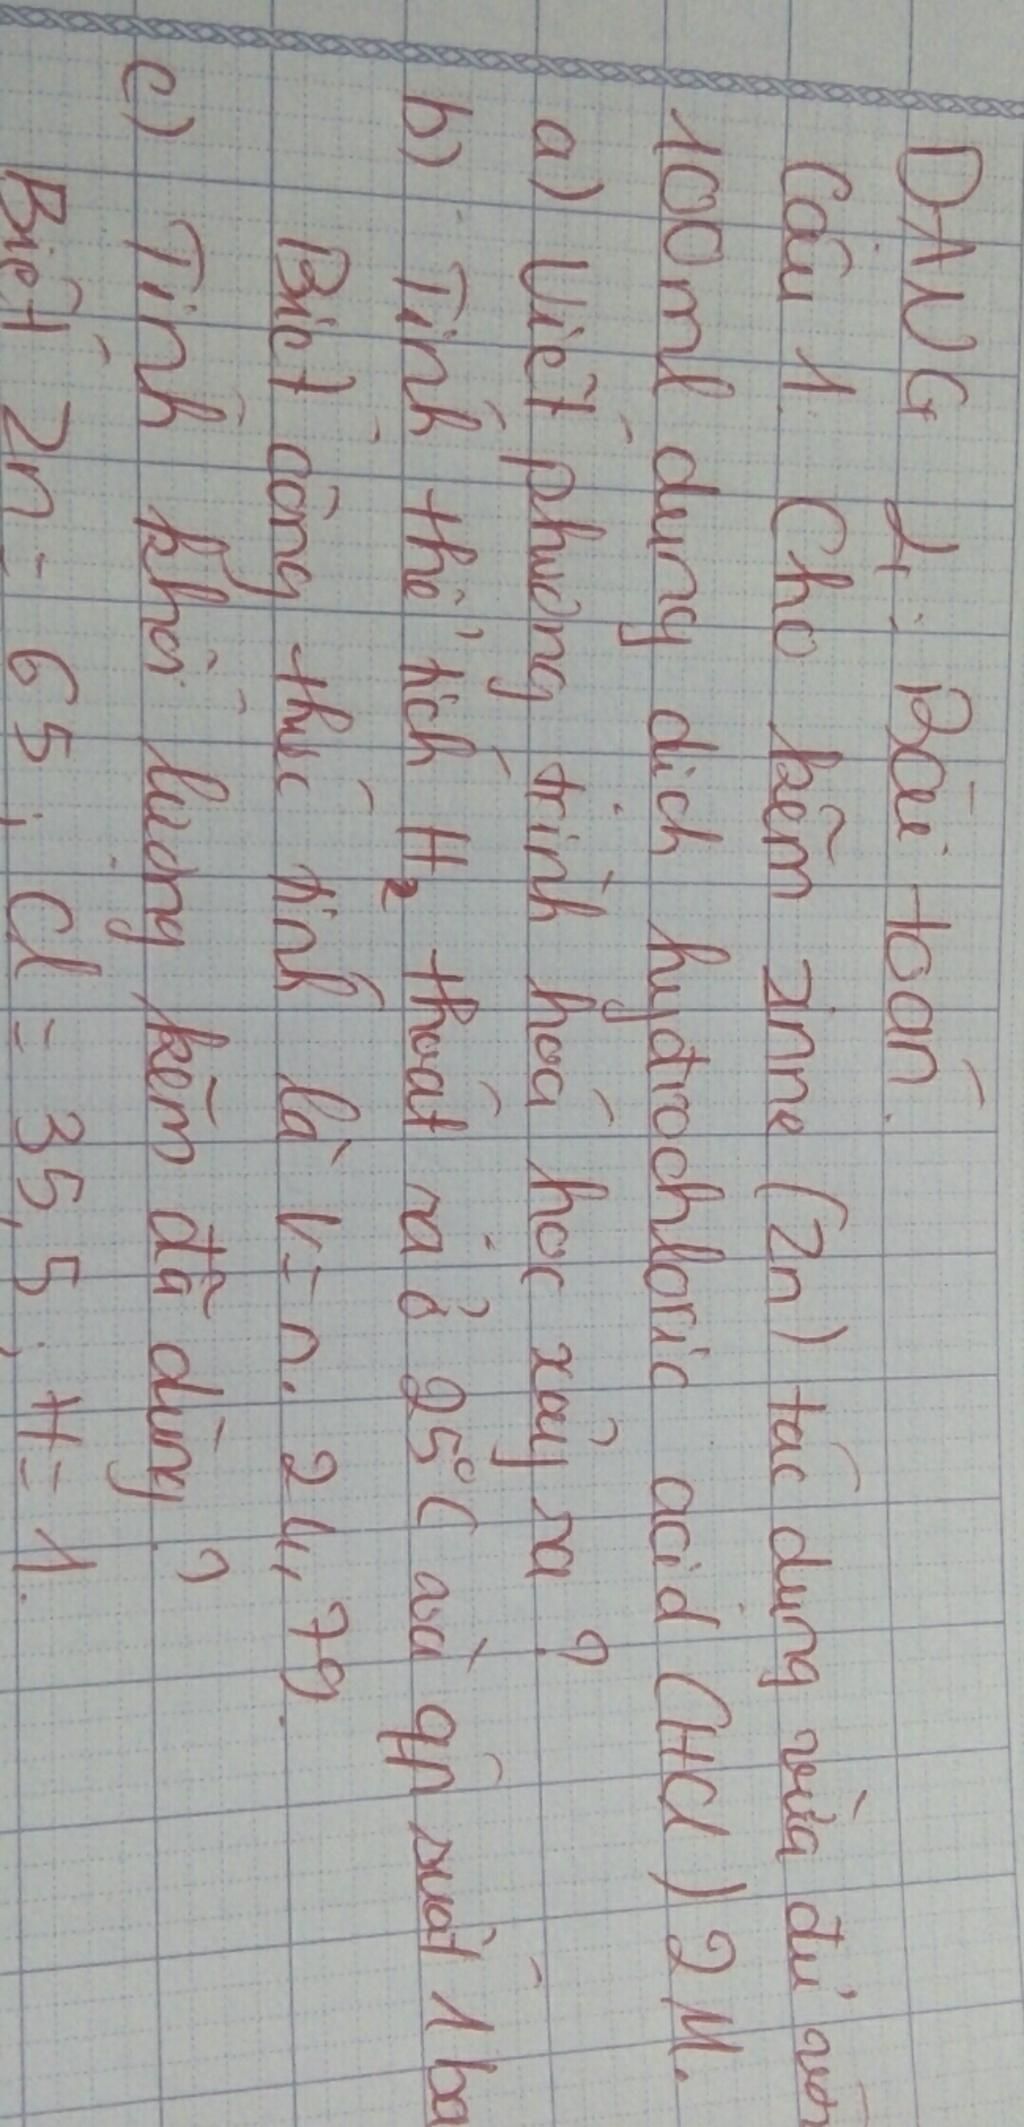 DẠNG 4: Bài toán.
Câu 1. Cho kẽm zine (Zn) tác dụng vừa đủ với
100ml dung dịch hyđrochloric acid (HCl) 2M.
a) Viết phương trình hoá học xảy ra ?
b) Tính thể tích H₂ thoát ra ở 25°C và áp suất 1 ba
Biết công thức tính là V = n. 24,79.
c) Tính khối lượng kẽm đã dùng ?
Biết Zn = 65; Cl = 35,5; H = 1.